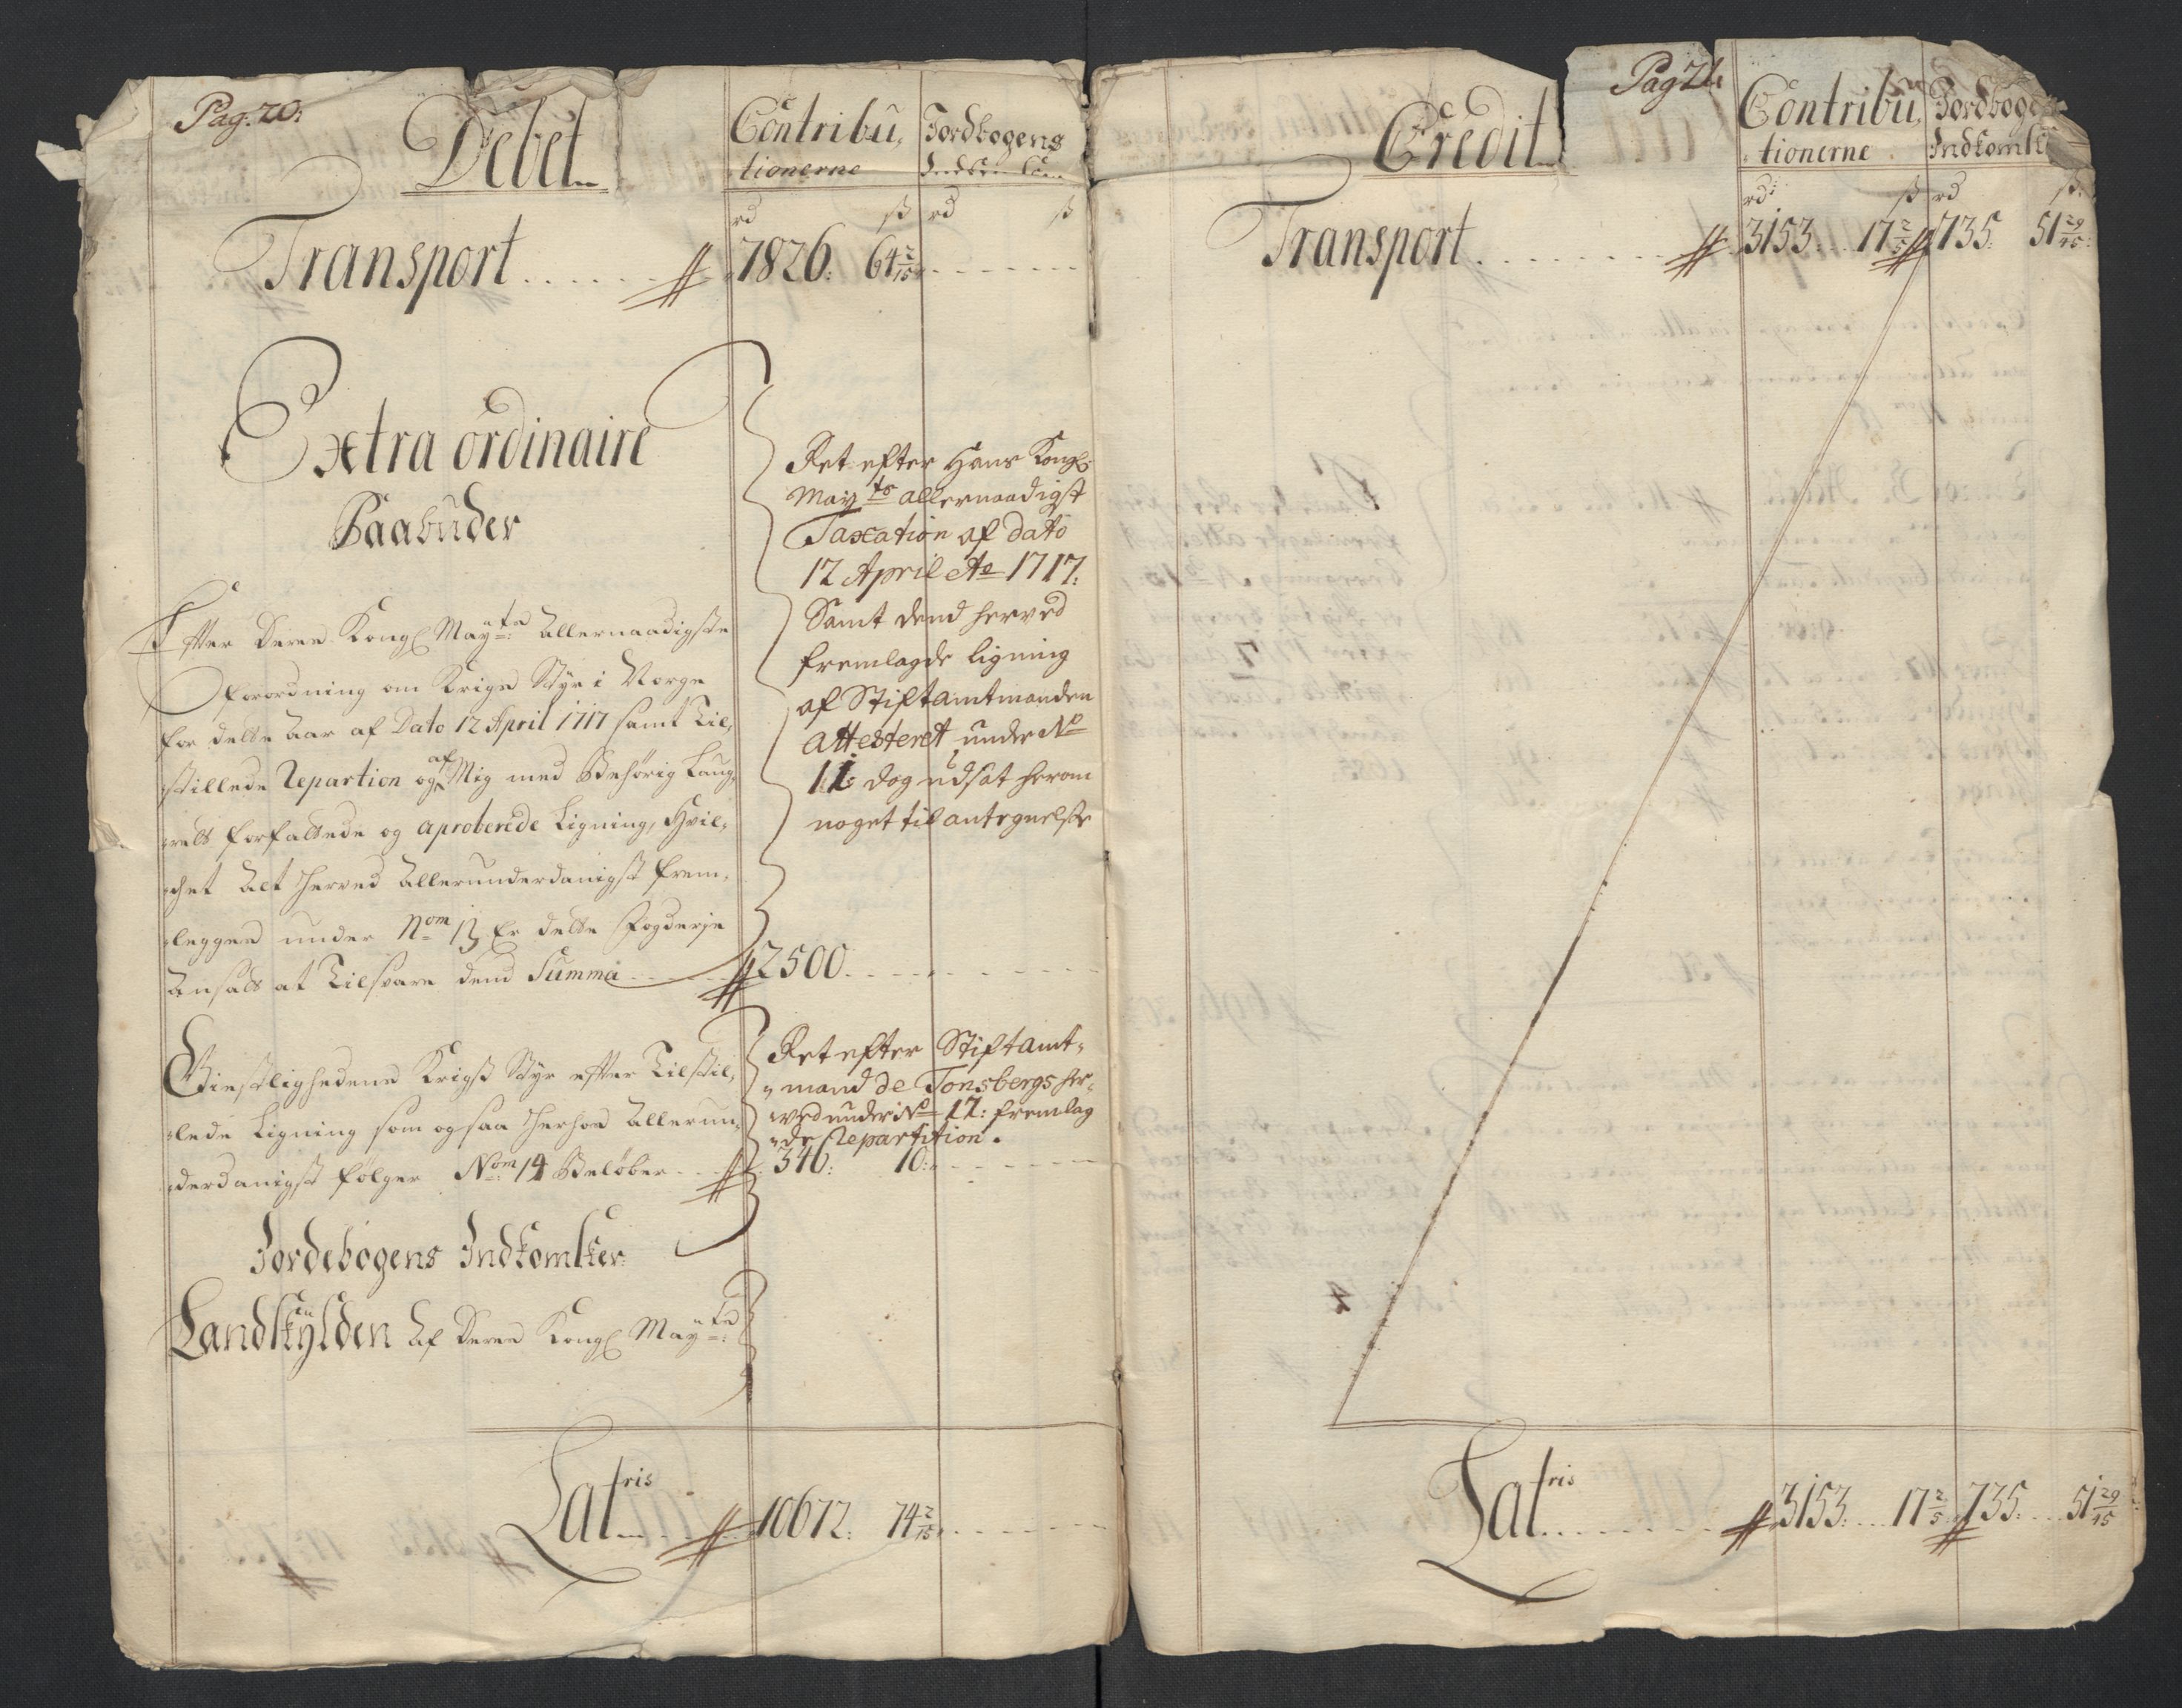 Pag: 20:
Debet
Contribu,
tionerne
Jordbogens
rd ß rd ß
Transport . . . . . 7826: 64 2/15
Extra ordinaire
Paabuder
Efter Deres Kongl May:ts Allernaadigste
forordning om Krigs Styr i Norge
for dette Aar af Dato 12 April 1717 samt Til,
stillede Repartion og af Mig med Behörig Laug,
retts forfattede og aproberede Ligning, Hvil,
chet Alt Herved Allerunderdanigst frem,
legges under Nom 13 Er dette Fogderje
Ansatt at Tilsvare dend Summa . . . . 2500 . . . .
Ret efter Hans Kongl:
May:ts allernaadigst
Taxation af dato
12 April Ao 1717:
Samt dend herved
fremlagde ligning
af Stiftamtmanden
Attesteret under No
11: dog udsat herom
noget til antegnelse
Giestlighedens Krigs Styr efter Tilstil,
lede Ligning som ogsaa Herhos Allerun,
derdanigst følger Nom: 14 Beløber . . . 346: 10:
Ret efter Stiftamt,
mand de Tonsbergs her,
ved under No 12: fremlag
de Repartition.
Jordebogens Indkomster
Landskylden Af Deres Kongl May:ts
Lat ris . . . . 10672: 74 2/15
Pag 21
Credit
Contribu,
tionerne
Jordboge
Indkomst
rd: ß rd ß
Transport . . . . . 3153: 17 2/5 735: 51 29/45
Lat ris . . . . . 3153: 17 2/5 735: 51 29/45